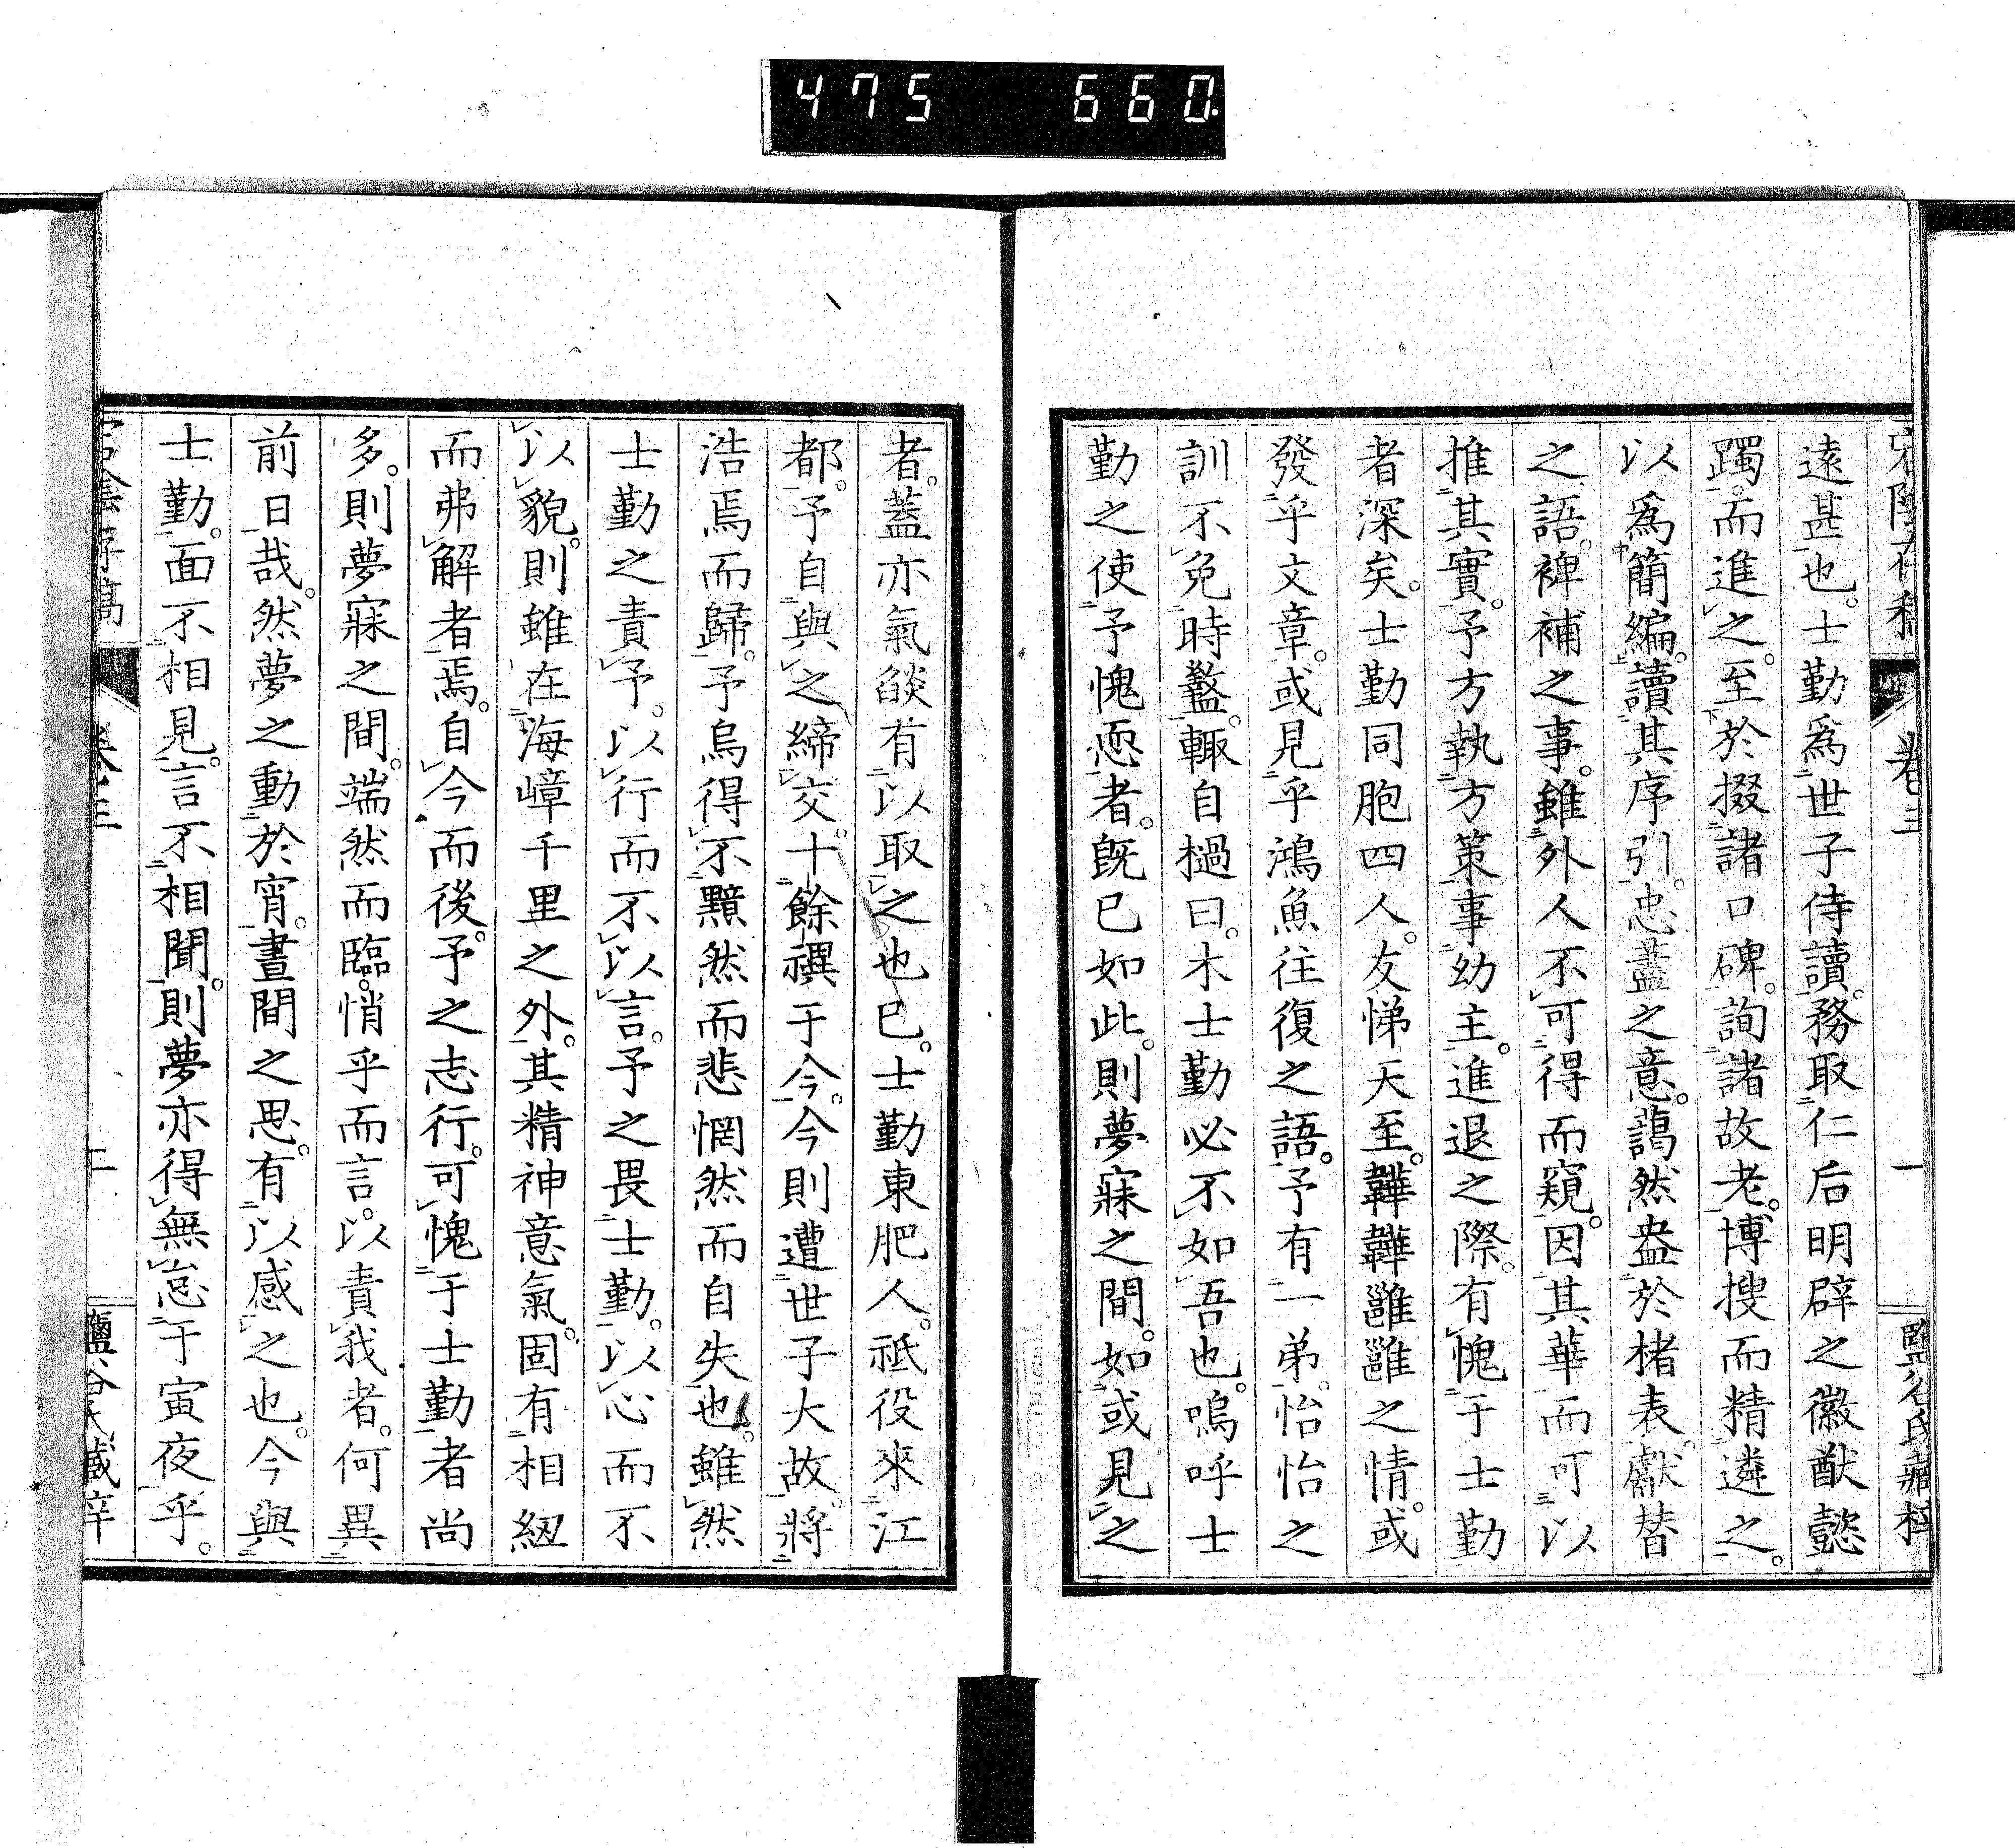 475 660
遠甚也。士勤爲世子侍讀。務取仁后明辟之徽猷懿
躅。而進之。至於掇諸口碑。詢諸故老。博搜而精遴之。
以爲簡編。讀其序引。忠藎之意。藹然盎於楮表。獻替
之語。裨補之事。雖外人不可得而窺。因其華而可以
推其實。予方執方策事幼主。進退之際。有愧于士勤
者深矣。士勤同胞四人。友悌天至。韡韡雝雝之情。或
發乎文章。或見乎鴻魚往復之語。予有一弟。怡怡之
訓不免時盭。輒自檛曰。木士勤必不如吾也。嗚呼士
勤之使予愧恧者。既已如此。則夢寐之間。如或見之
者。蓋亦氣燄有以取之也已。士勤東肥人。祗役來江
都。予自與之締交。十餘禩于今。今則遭世子大故。將
浩焉而歸。予烏得不黯然而悲惘然而自失也。雖然
士勤之責予。以行而不以言。予之畏士勤。以心而不
以貌。則雖在海嶂千里之外。其精神意氣。固有相紐
而弗解者焉。自今而後。予之志行。可愧于士勤者尚
多。則夢寐之間。端然而臨。悄乎而言。以責我者。何異
前日哉。然夢之動於宵。晝間之思。有以感之也。今與
士勤。面不相見。言不相聞。則夢亦得無怠于寅夜乎。
卷三 二